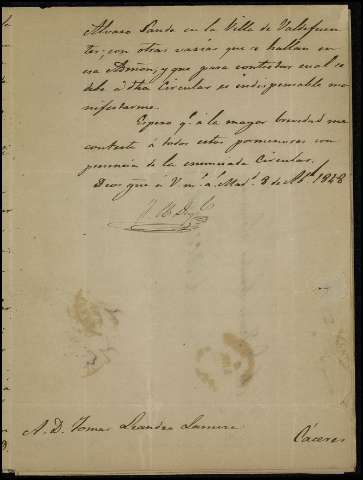 Alvaro Sande en la Villa de Valdefuen
tes; con otras varias que se hallan en
esa Admon, y que para contestar cual se
debe á dha Circular es indispensable ma
nifestarme.
Espero qe á la mayor brevedad me
conteste á todos estos pormenores con
presencia de la enunciada Circular.
Dios gue á V m. a. Madd. 8 de Abl 1848
A. D. Tomas Leandro
Cáceres